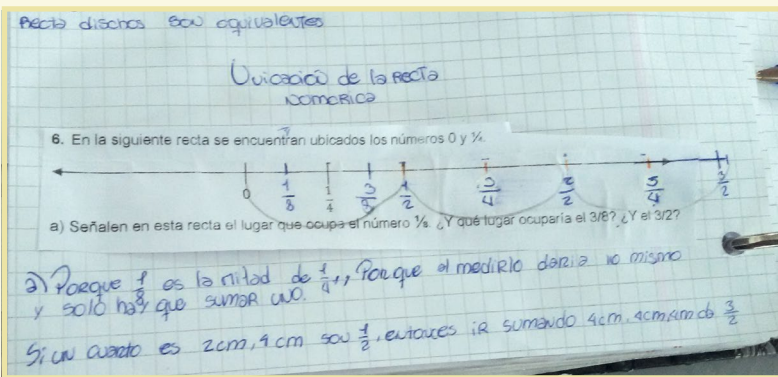 Recta dischos son equivalentes
Uvicació de la Recta
Nomerica
6. En la siguiente recta se encuentran ubicados los números 0 y ¼.
0 1/8 1/4 3/8 1/2 3/4 2/2 5/4 3/2
a) Señalen en esta recta el lugar que ocupa el número ⅛. ¿Y qué lugar ocuparía el 3/8? ¿Y el 3/2?
a) Porque 1/8 es la mitad de 1/4, Porque al medirlo daria lo mismo
y solo hay que sumar uno.
Si un cuarto es 2cm, 4cm son 1/2, entonces ir sumando 4cm, 4cm, 4cm da 3/2